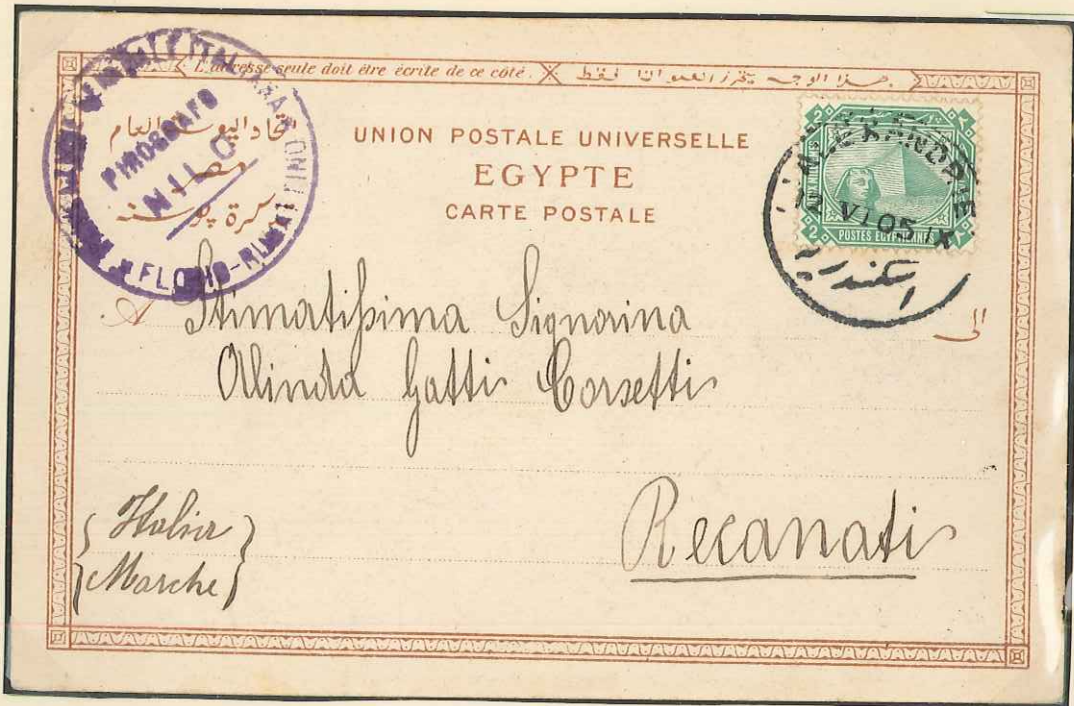 L'adresse seule doit être écrite de ce côté.
UNION POSTALE UNIVERSELLE
EGYPTE
CARTE POSTALE
PIROSCAFO
NILO
FLORIO-RUBATTINO
2 2
ALEXANDRIE
12 VI 05 IX
POSTES EGYPTIENNES
2 ٢
اسكندرية
A
الى
Stimatissima Signorina
Alinda Gatti Corsetti
Recanati
{ Italia
Marche }